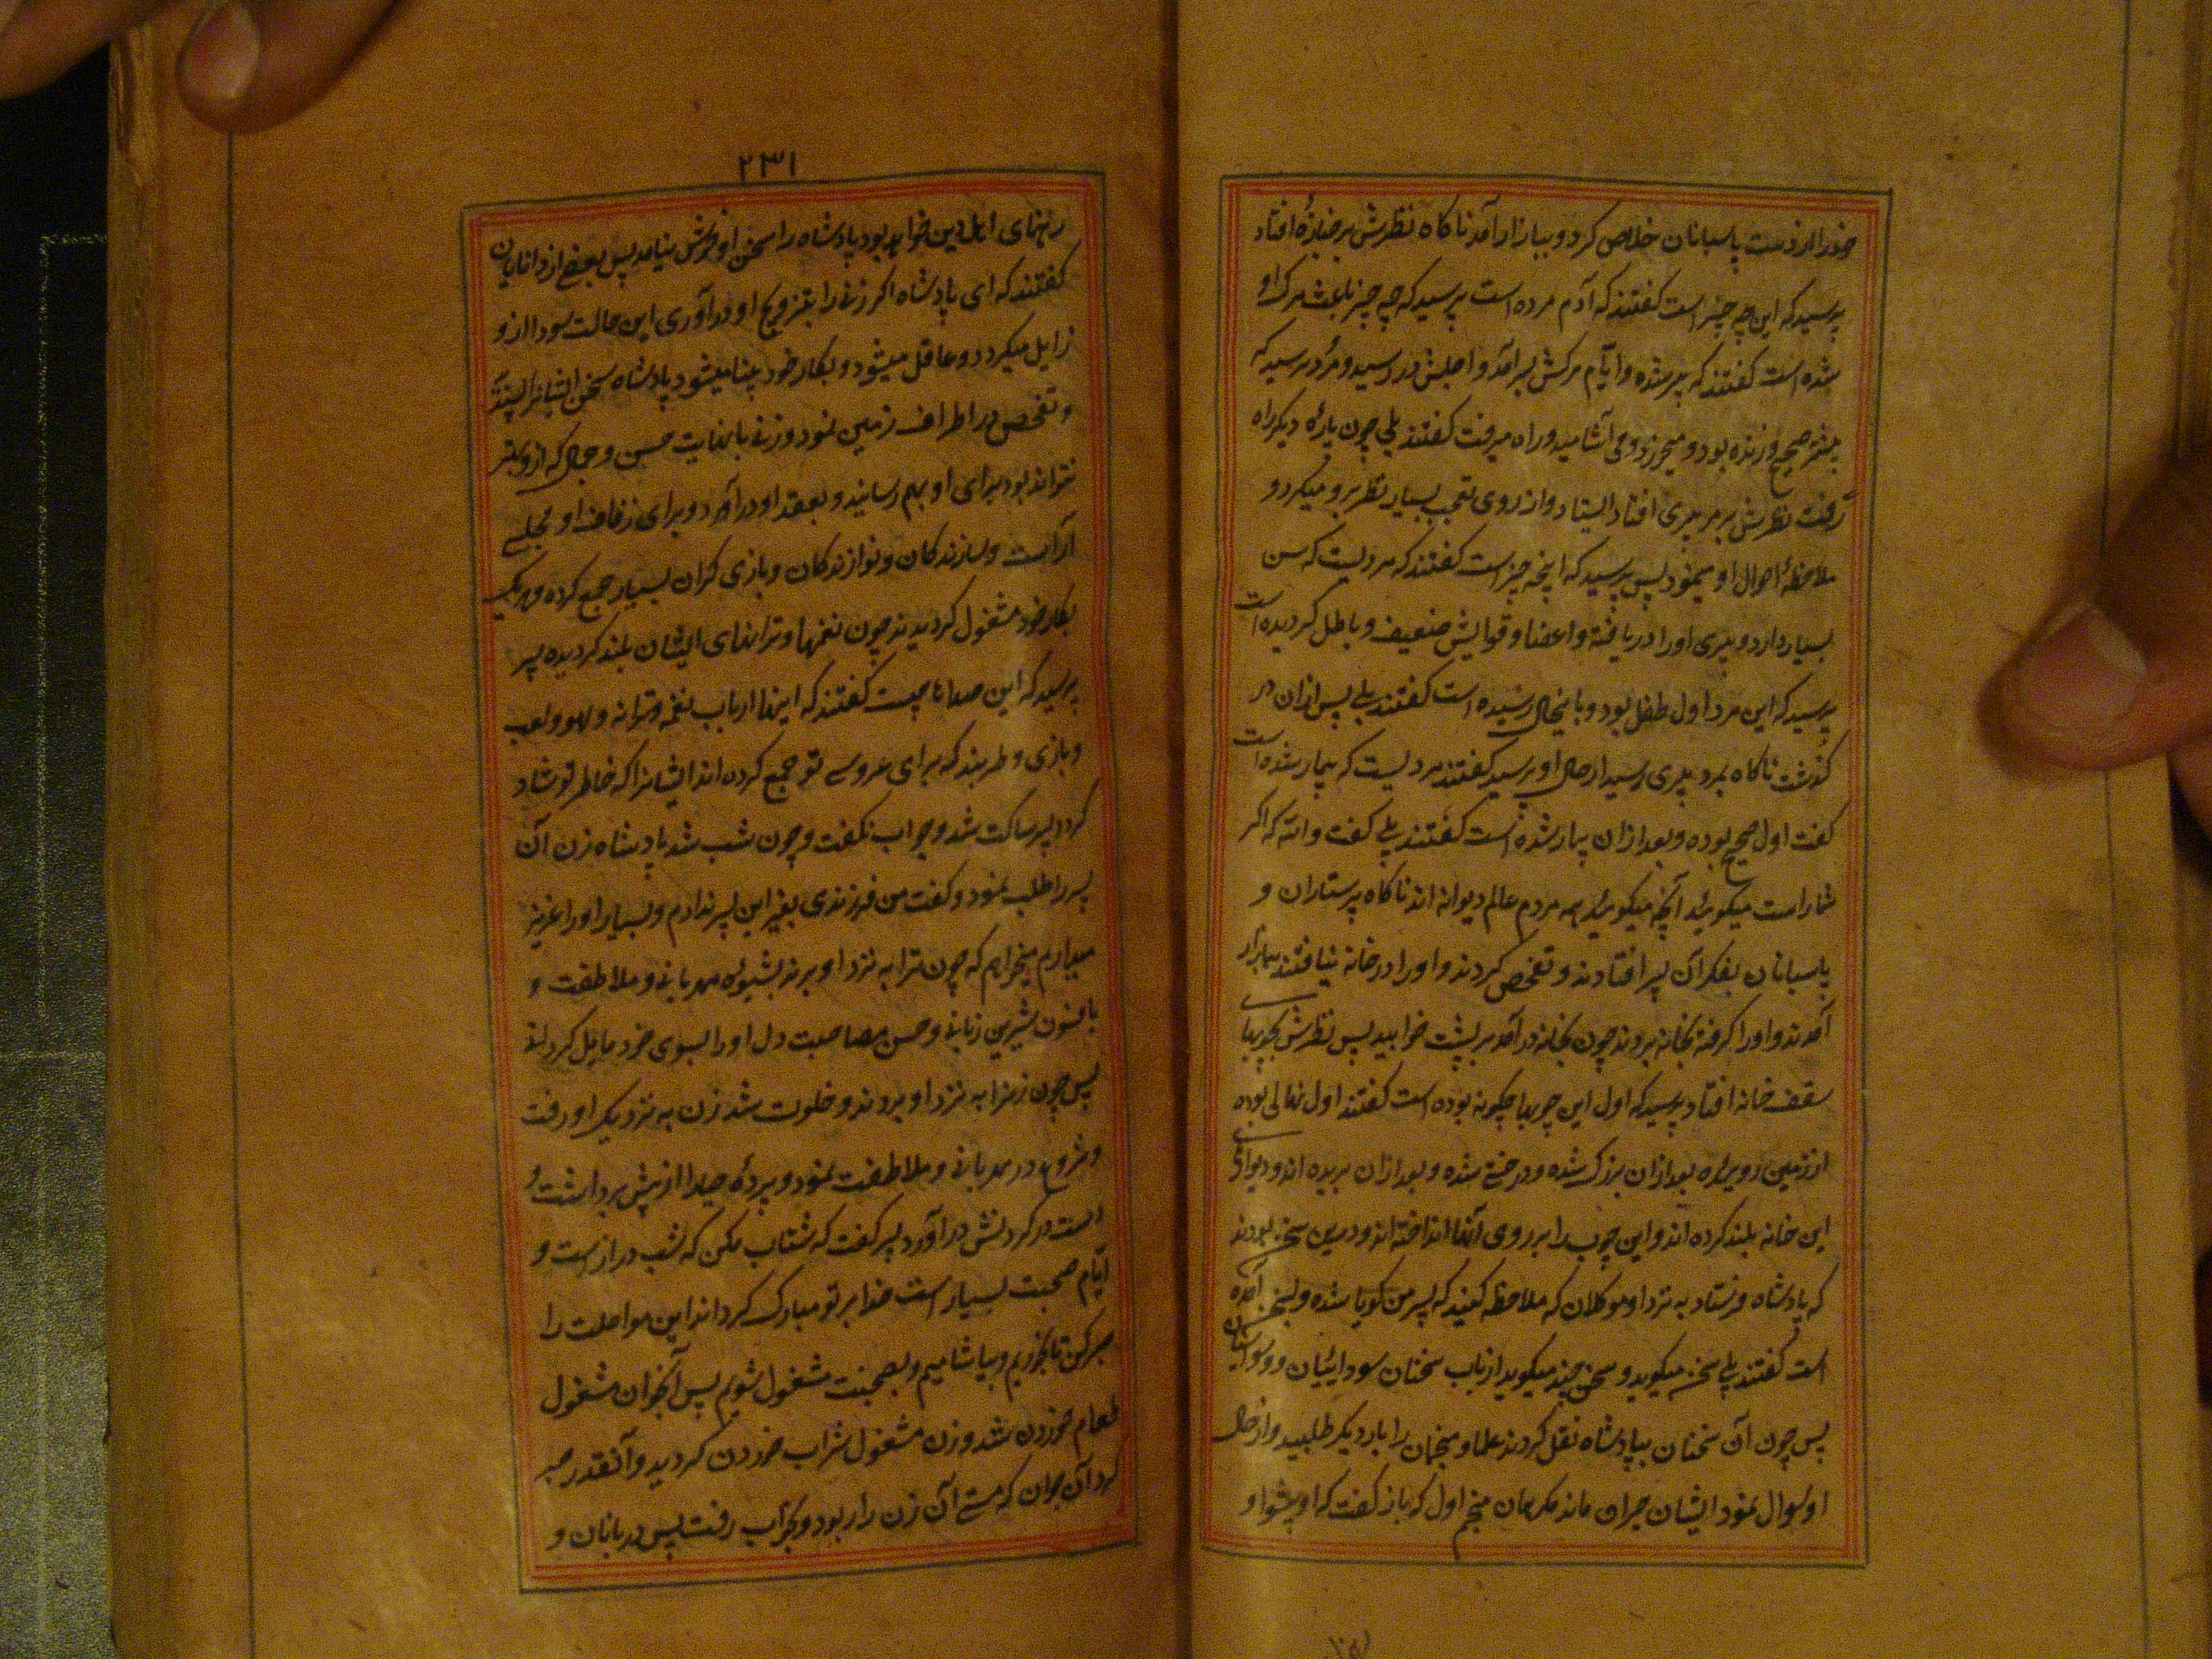 خود را از دست پاسبانان خلاص کرد و ببازار آمد ناکاه نظرش بر جنازهٔ افتاد
پرسید که این چه چیز است کفتند که آدم مرده است پرسید که چه چیز باعث مرک او
شده است کفتند که پیر شده و ایام مرکش بسر آمد و اجلش در رسید و مرد پرسید که
پیشتر صحیح و زنده بود و میخورد و می آشامید و راه میرفت کفتند بلی چون پارهٔ دیکر راه
رفت نظرش بر مرد پیری افتاد ایستاد و از روی تعجب بسیار نظر برو میکرد و
ملاحظهٔ احوال او مینمود پس پرسید که اینچه چیز است کفتند که مردیست که سن
بسیار دارد و پیری او را دریافته و اعضا و قوایش ضعیف و باطل کردیده است
پرسید که این مرد اول طفل بود و باینحال رسیده است کفتند بلی پس ازان در
کذشت ناکاه بمرد پیری رسید از حال او پرسید کفتند مردیست که بیمار شده است
کفت اول صحیح بوده و بعد ازان بیمار شده است کفتند بلی کفت والله که اکر
شما راست میکوئید آنچه میکوئید همه مردم عالم دیوانه اند ناکاه پرستاران و
پاسبانان بفکر آن پسر افتادند و تفحص کردند و او را در خانه نیافتند ببازار
آمدند و او را کرفته بخانه بردند چون بخانه درآمد بر پشت خوابید پس نظرش بچوبهای
سقف خانه افتاد پرسید که اول این چوبها چکونه بوده است کفتند اول نهالی بوده
از زمین روئیده بعد ازان بزرک شده و درختی شده و بعد ازان بریده اند و دیوارهای
این خانه بلند کرده اند و این چوب را بر روی آنها انداخته اند و درین سخن بودند
که پادشاه فرستاد به نزد او موکلان که ملاحظه کنید که پسر من کویا شده و بسخن آمده
است کفتند بلی سخن میکوید و سخن چند میکوید از باب سخنان سودائیان و وسواسیان
پس چون آن سخنان بپادشاه نقل کردند علما و منجمان را بار دیکر طلبید و از حال
او سوال نمود ایشان حیران ماند مکر همان منجم اول که باز کفت که او پیشوا و
۲۳۱
رهنمای اهل دین خواهد بود پادشاه را سخن او خوش نیامد پس بعضی از دانایان
کفتند که ای پادشاه اکر زنی را بتزویج او درآوری این حالت سودا ازو
زایل میکردد و عاقل میشود و بکار خود بینا میشود پادشاه سخن ایشانرا پسندید
و تفحص در اطراف زمین نمود و زنی با نهایت حسن و جمال که ازو بهتر
نتواند بود برای او بهم رسانید و بعقد او درآورد و برای زفاف او مجلسی
آراست و سازندکان و نوازندکان و بازی کران بسیار جمع کرده هر یک
بکار خود مشغول کردیدند چون نغمها و ترانهای ایشان بلند کردیده پسر
پرسید که این صداها چیست کفتند که اینها ارباب نغمه و ترانه و لهو و لعب
و بازی و طربند که برای عروسی تو جمع کرده اند ایشانرا که خاطر تو شاد
کردد پسر ساکت شد و جواب نکفت و چون شب شد پادشاه زن آن
پسر را طلب نمود و کفت من فرزندی بغیر این پسر ندارم و بسیار او را عزیز
میدارم میخواهم که چون ترا به نزد او برند بشیوهٔ مهربانی و ملاطفت و
بافسون شیرین زبانی و حسن مصاحبت دل او را بسوی خود مایل کردانی
پس چون زنرا به نزد او بردند و خلوت شد زن به نزدیک او رفت
و شروع در مهربانی و ملاطفت نمود و پردهٔ حیا را از پیش برداشت و
دست در کردنش درآورد پسر کفت که شتاب مکن که شب دراز است و
ایام صحبت بسیار است خدا بر تو مبارک کرداند این مواصلت را
صبر کن تا بخوریم و بیاشامیم و بصحبت مشغول شویم پس آنجوان مشغول
طعام خوردن شد و زن مشغول شراب خوردن کردید و آنقدر صبر
کرد آن جوان که مستی آن زن را ربود و بخواب رفت پس دربانان و